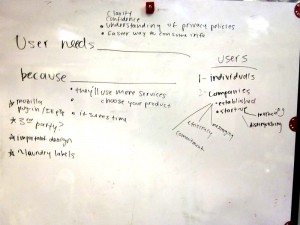 Clarity
Confidence
• Understanding of privacy policies
• Easier way to consume info
User needs
because
• they'll use more services
• choose your product
• it saves time
* mozilla
plug-in
* 3rd party?
* important design
* laundry labels
users
1- individuals
2- companies
• established
• start-up